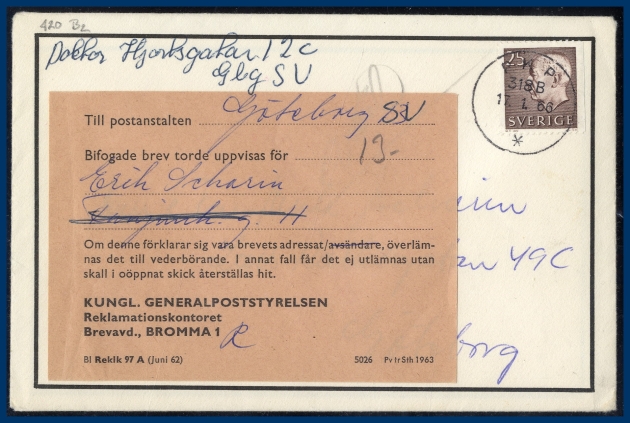 420 B2
Doktor Hjortsgatan 12 c
Gbg SV
25
PKP
318B
1 66
SVERIGE
Till postanstalten Göteborg SV
13-
Bifogade brev torde uppvisas för
Erik Scharin
g. 11
Om denne förklarar sig vara brevets adressat/avsändare, överläm-
nas det till vederbörande. I annat fall får det ej utlämnas utan
skall i oöppnat skick återställas hit.
KUNGL. GENERALPOSTSTYRELSEN
Reklamationskontoret
Brevavd., BROMMA 1
R
Bl Reklk 97 A (Juni 62) 5026 Pv tr Sth 1963
49C
borg